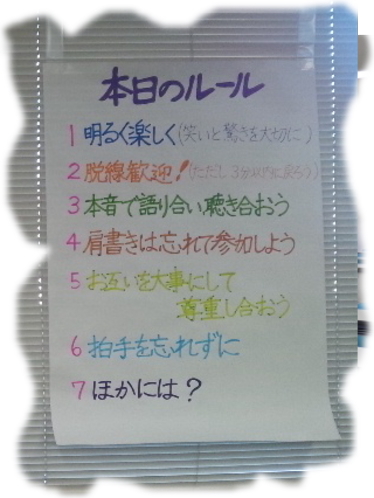 本日のルール
1 明るく楽しく(笑いと驚きを大切に)
2 脱線歓迎!(ただし3分以内に戻ろう)
3 本音で語り合い聴き合おう
4 肩書きは忘れて参加しよう
5 お互いを大事にして
尊重し合おう
6 拍手を忘れずに
7 ほかには?